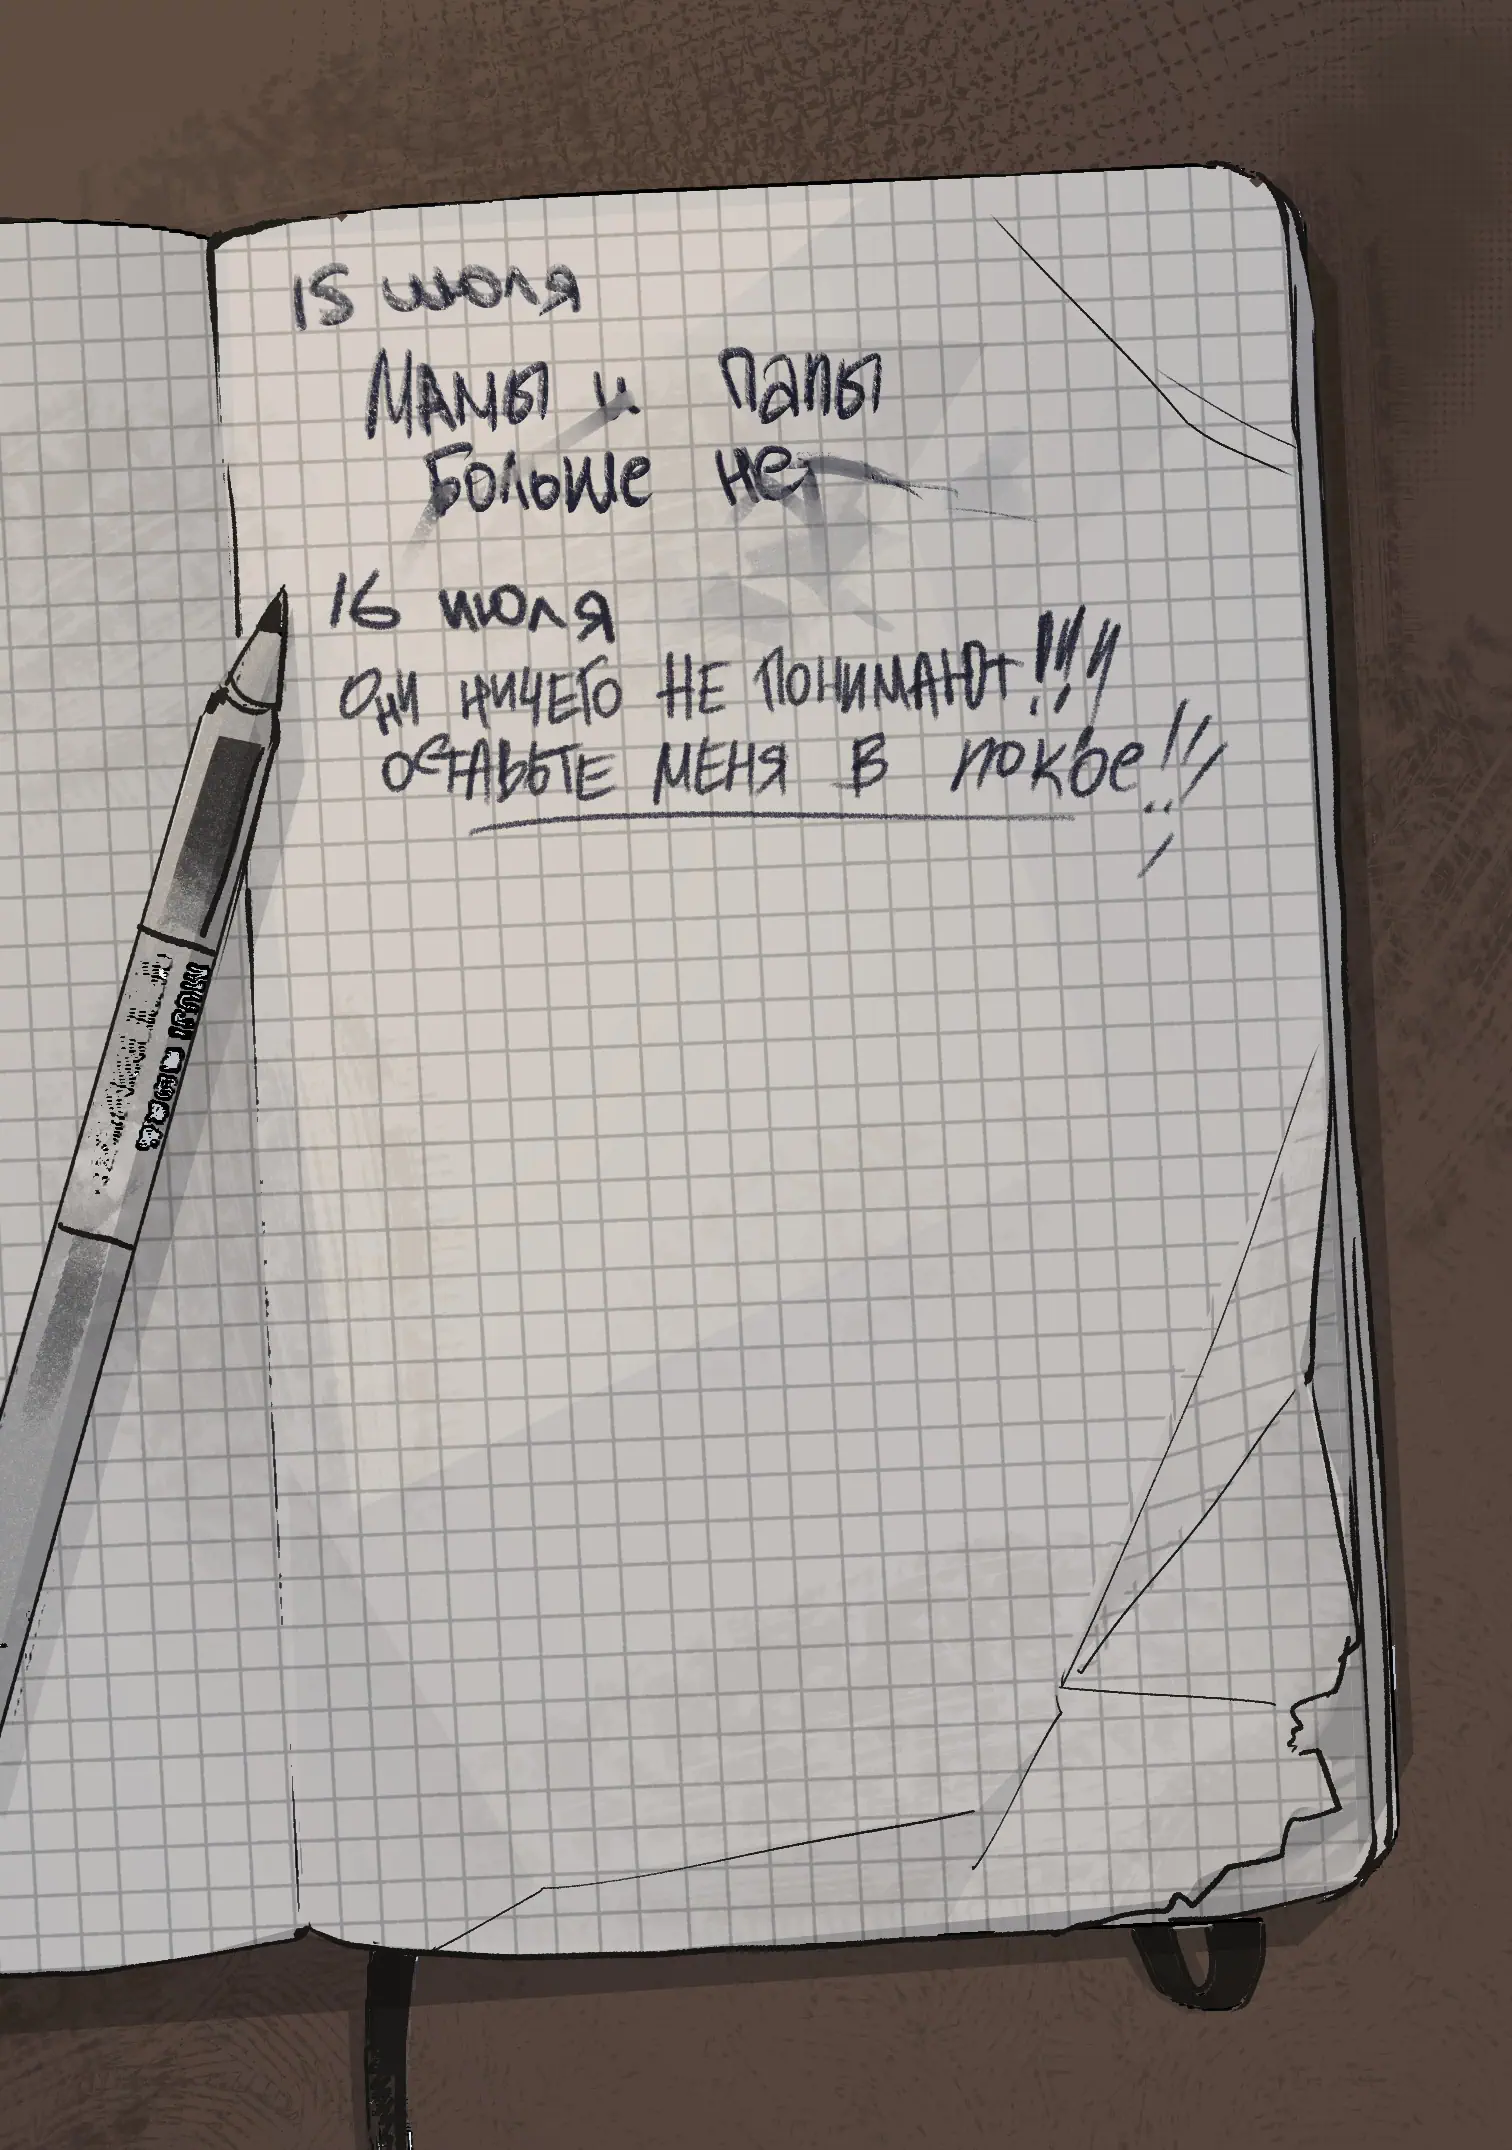 15 июля
Мамы и папы
больше нет
16 июля
Они ничего не понимают!!!!
оставьте меня в покое!!!